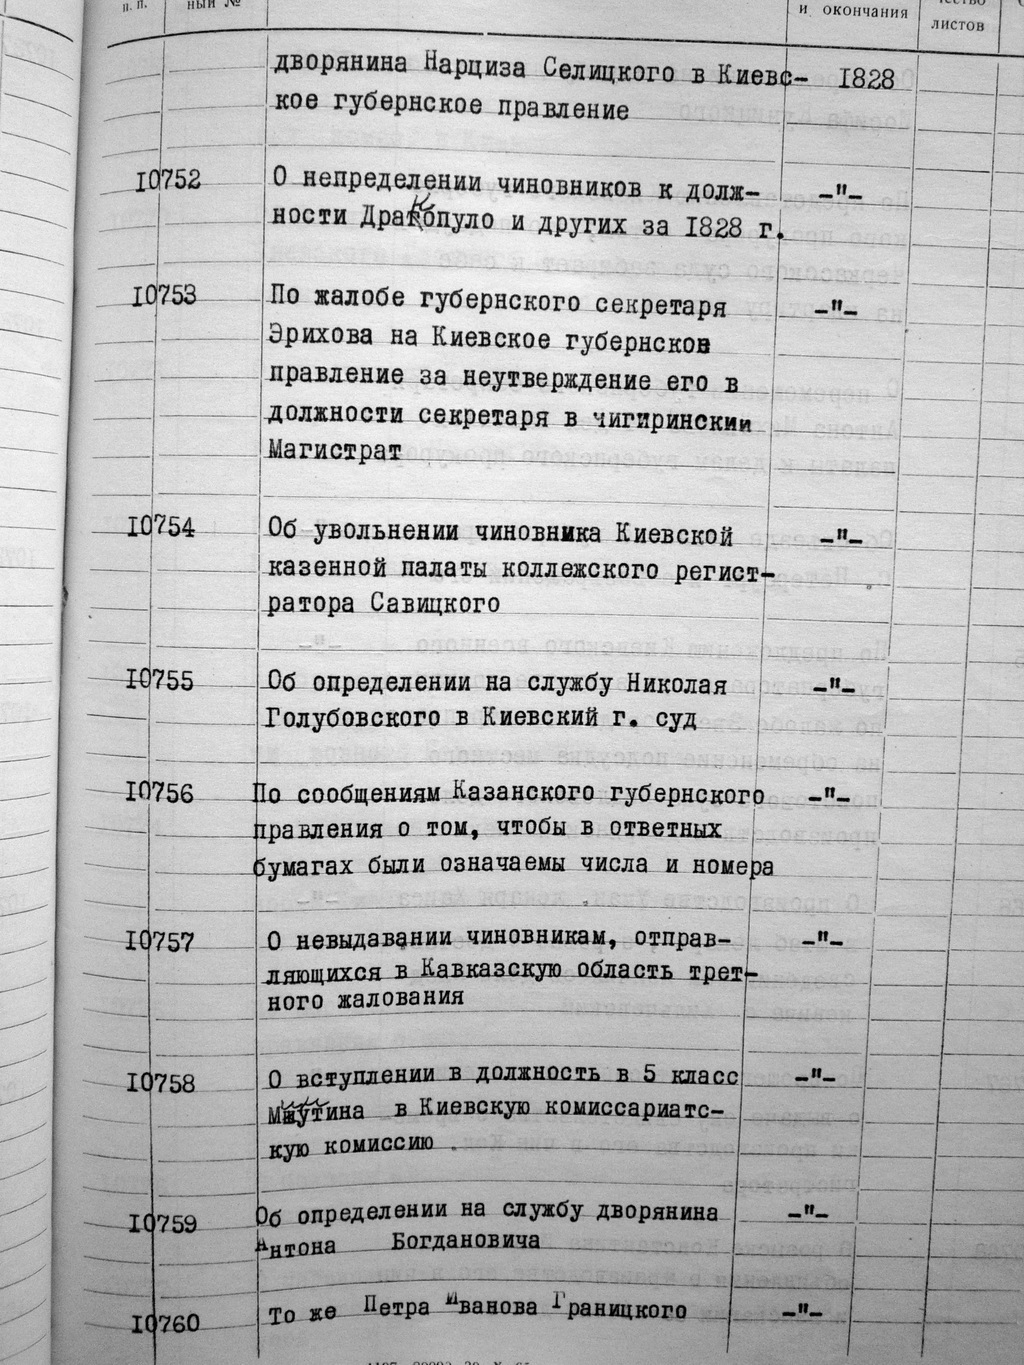 п. п.
ный №
и окончания
листов
дворянина Нарциза Селицкого в Киевс- 1828
кое губернское правление
10752 О непределении чиновников к долж- -"-
ности Дракопуло и других за 1828 г.
10753 По жалобе губернского секретаря -"-
Эрихова на Киевское губернсков
правление за неутверждение его в
должности секретаря в чигиринскии
Магистрат
10754 Об увольнении чиновника Киевской -"-
казенной палаты коллежского регист-
ратора Савицкого
10755 Об определении на службу Николая -"-
Голубовского в Киевский г. суд
10756 По сообщениям Казанского губернского -"-
правления о том, чтобы в ответных
бумагах были означаемы числа и номера
10757 О невыдавании чиновникам, отправ- -"-
ляющихся в Кавказскую область трет-
ного жалования
10758 О вступлении в должность в 5 класс -"-
в Киевскую комиссариатс-
кую комиссию.
10759 Об определении на службу дворянина -"-
Антона Богдановича
10760 То же Петра Иванова Границкого -"-